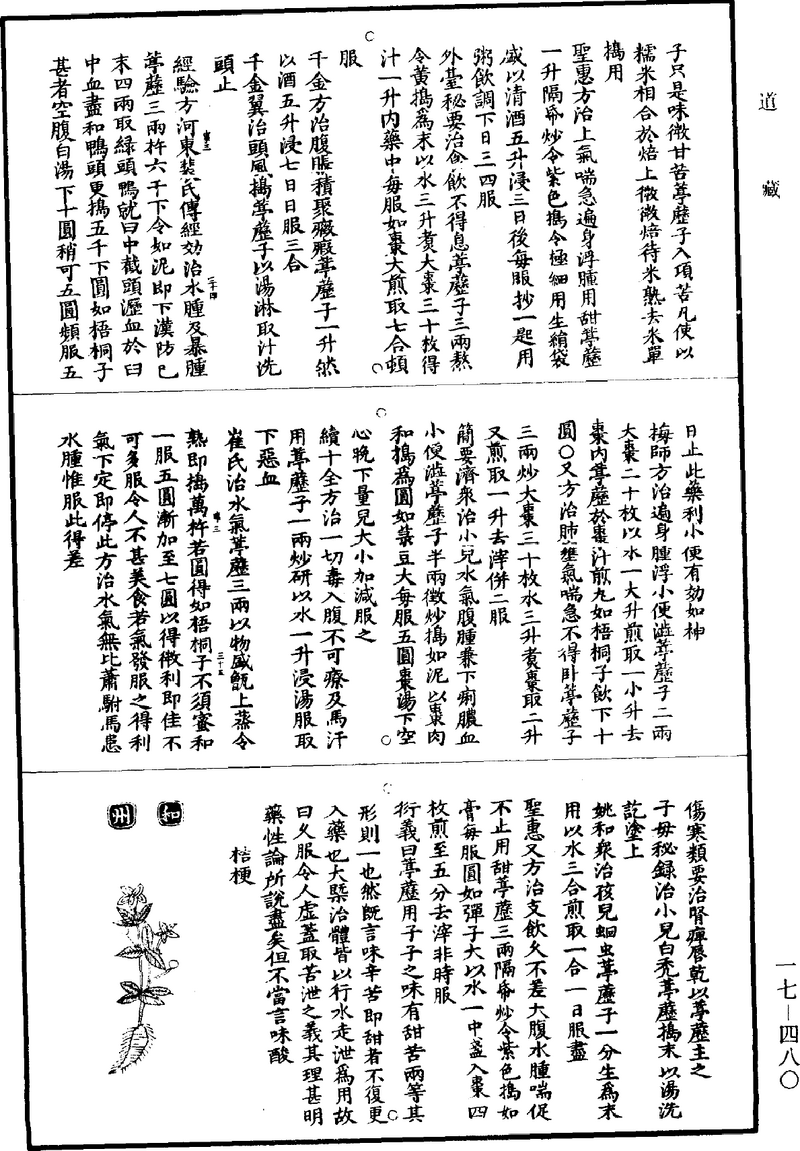 道藏
子只是味微甘苦葶藶子入項苦凡使以
糯米相合於焙上微微焙待米熟去米單
搗用
聖惠方治上氣喘急遍身浮腫用甜葶藶
一升隔帋炒令紫色搗令極細用生絹袋
盛以清酒五升浸三日後每服抄一匙用
粥飲調下日三四服
外臺秘要治食飲不得息葶藶子三兩熬
令黃搗為末以水三升煮大棗三十枚得
汁一升內藥中每服如棗大煎取七合頓
服
千金方治腹脹積聚癥瘕葶藶子一升熬
以酒五升浸七日日服三合
千金翼治頭風搗葶藶子以湯淋取汁洗
頭止
經驗方河東裴氏傳經効治水腫及暴腫
葶藶三兩杵六千下令如泥即下漢防已
末四兩取綠頭鴨就臼中截頭瀝血於臼
中血盡和鴨頭更搗五千下圓如梧桐子
甚者空腹白湯下十圓稍可五圓頻服五
日止此藥利小便有効如神
梅師方治遍身腫浮小便澁葶藶子二兩
大棗二十枚以水一大升煎取一小升去
棗內葶藶於棗汁煎丸如梧桐子飲下十
圓○又方治肺壅氣喘急不得卧葶藶子
三兩炒大棗三十枚水三升煮棗取二升
又煎取一升去滓併二服
簡要濟衆治小兒水氣腹腫兼下痢膿血
小便澁葶藶子半兩微炒搗如泥以棗肉
和搗為圓如菉豆大每服五圓棗湯下空
心晚下量兒大小加減服之
續十全方治一切毒入腹不可療及馬汗
用葶藶子一兩炒研以水一升浸湯服取
下惡血
崔氏治水氣葶藶三兩以物盛甑上蒸令
熟即搗萬杵若圓得如梧桐子不須蜜和
一服五圓漸加至七圓以得微利即佳不
可多服令人不甚美食若氣發服之得利
氣下定即停此方治水氣無比蕭駙馬患
水腫惟服此得差
傷寒類要治腎癉唇乾以葶藶主之
子母秘録治小兒白禿葶藶搗末以湯洗
訖塗上
姚和衆治孩兒蛔虫葶藶子一分生為末
用以水三合煎取一合一日服盡
聖惠又方治支飲久不差大腹水腫喘促
不止用甜葶藶三兩隔帋炒令紫色搗如
膏每服圓如彈子大以水一中盞入棗四
枚煎至五分去滓非時服
衍義曰葶藶用子子之味有甜苦兩等其
形則一也然既言味辛苦即甜者不復更
入藥也大槩治體皆以行水走泄為用故
曰久服令人虛蓋取苦泄之義其理甚明
藥性論所說盡矣但不當言味酸
桔梗
和州
一七—四八〇